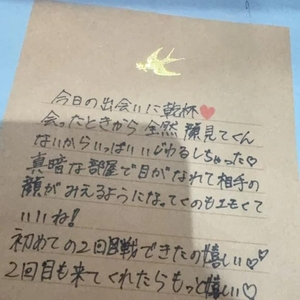 今日の出会いに乾杯❤
会ったときから全然顔見てくん
ないからいっぱいいじわるしちゃった♡
真暗な部屋で目がなれて相手の
顔がみえるようになってくのもエモくて
いいね!
初めての2回戦できたの嬉しい♡♡
2回目も来てくれたらもっと嬉しい♡